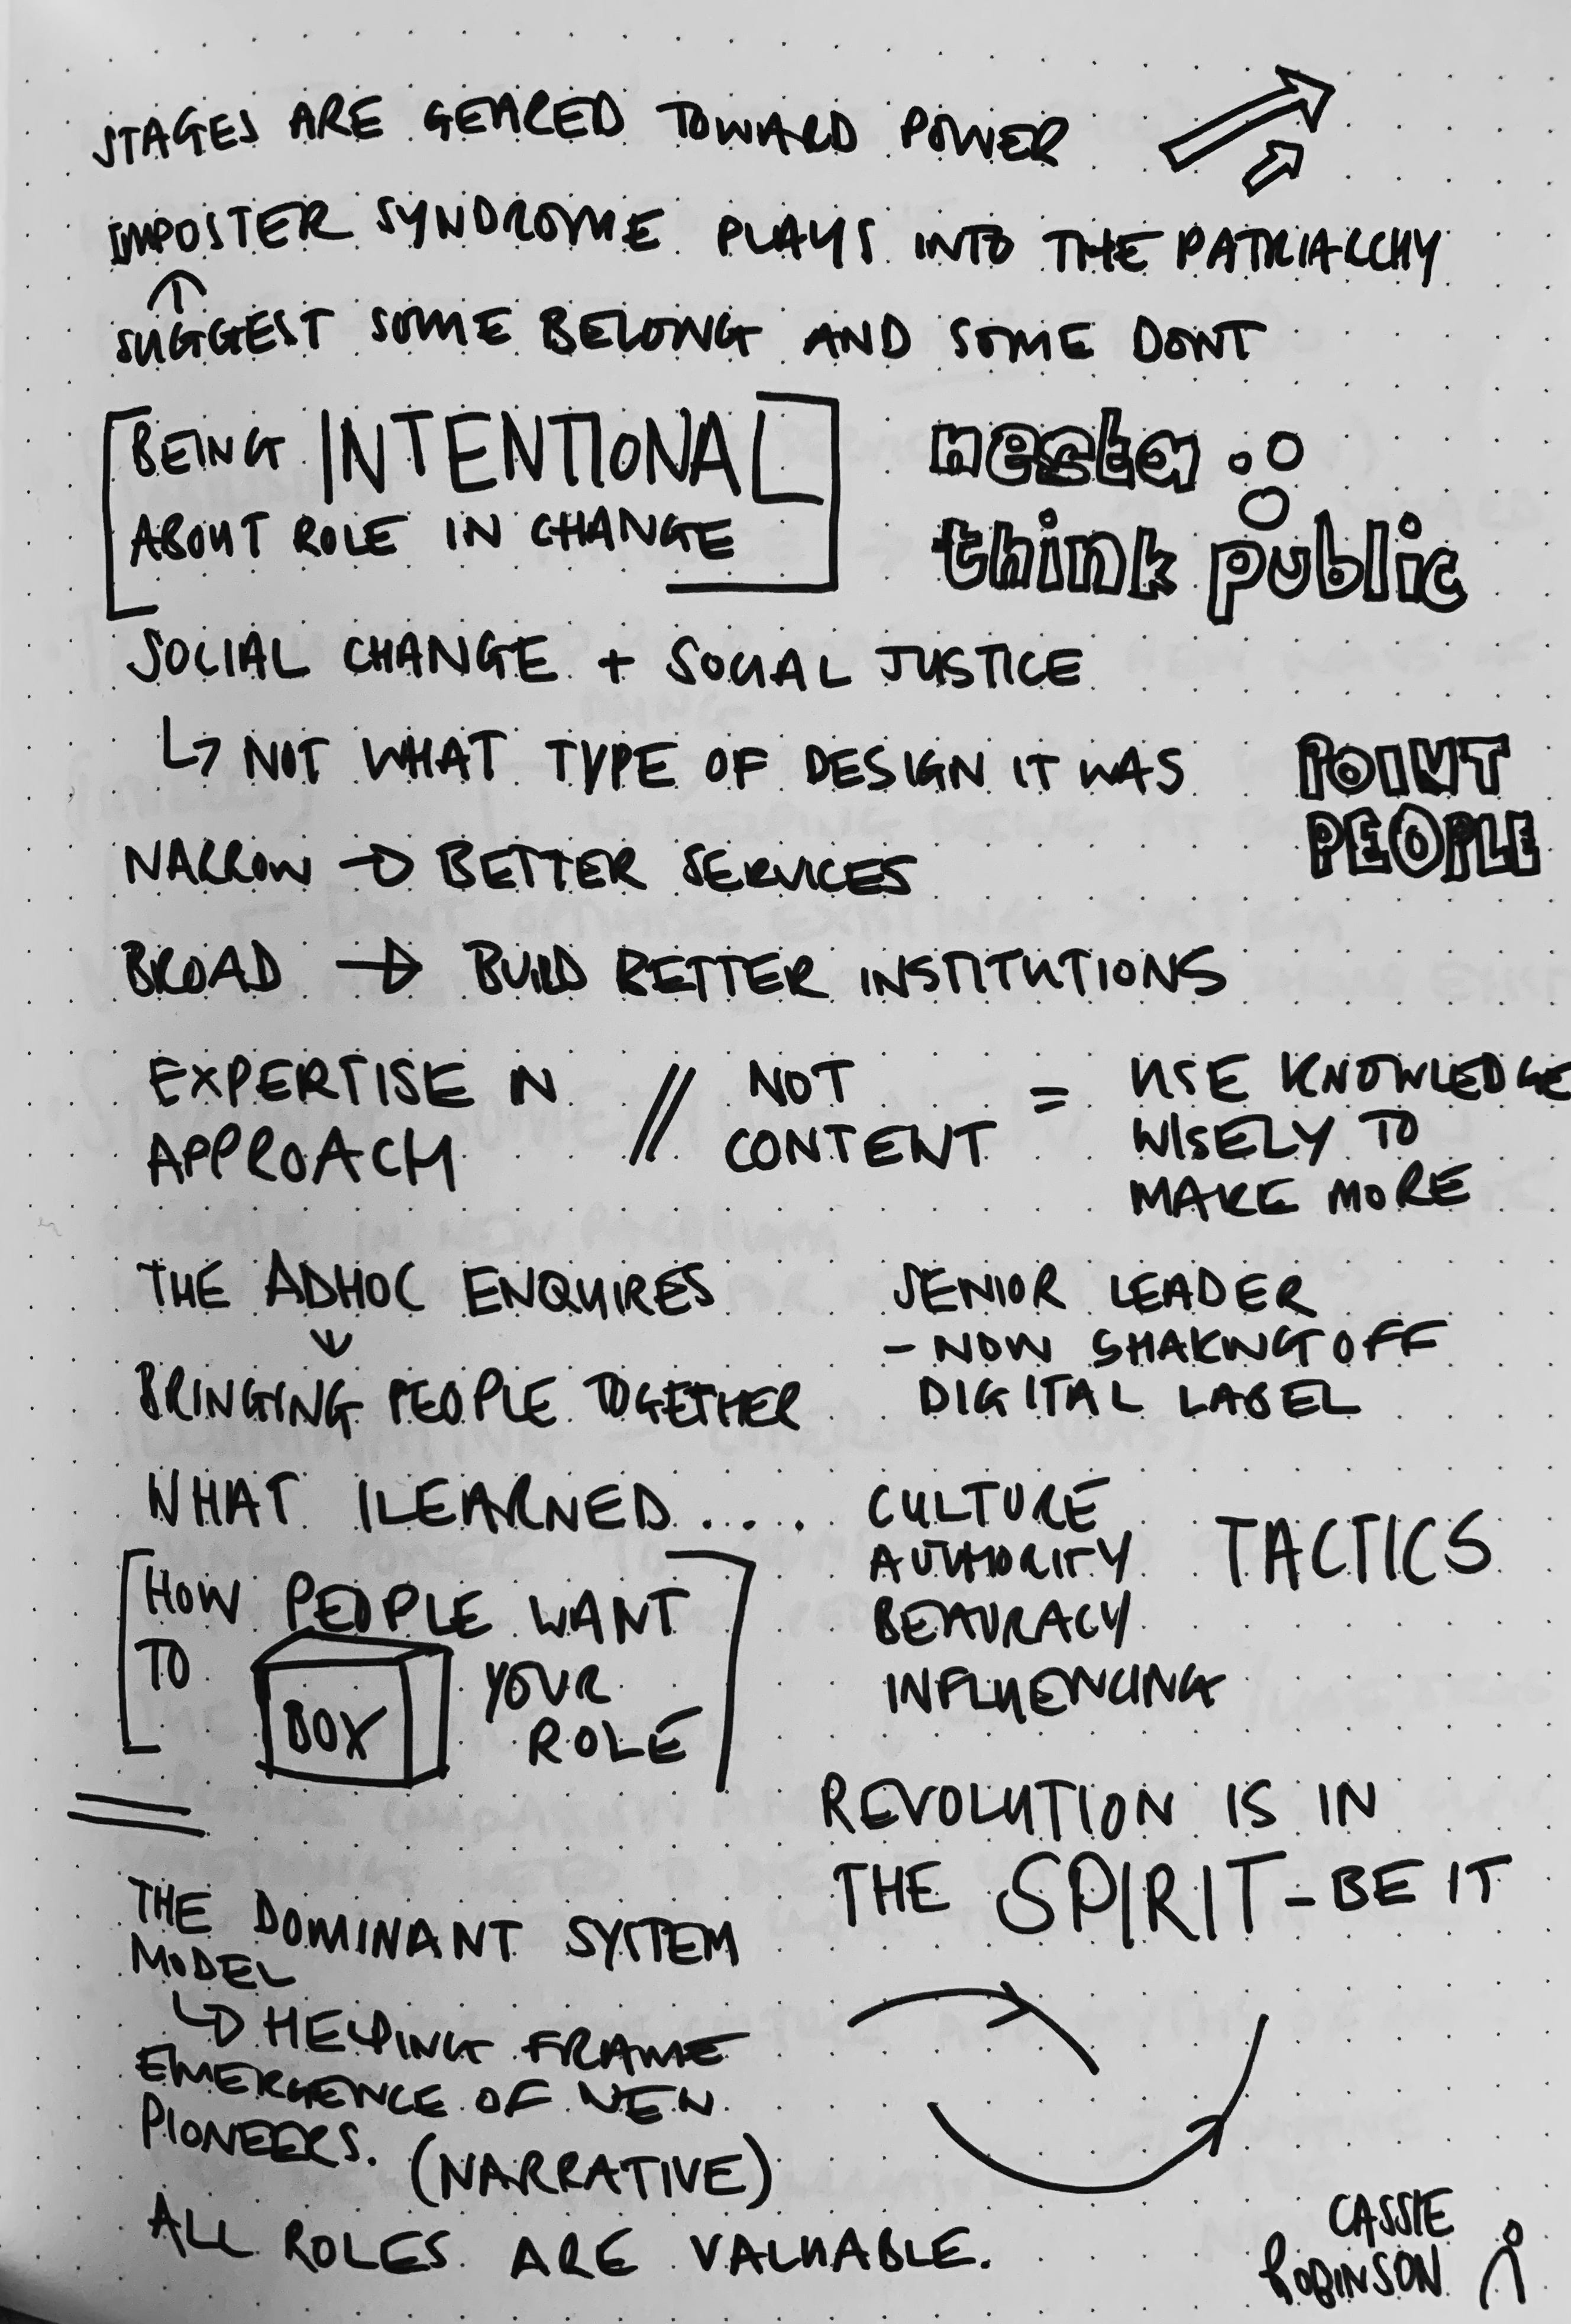 STAGES ARE GEARED TOWARD POWER
IMPOSTER SYNDROME PLAYS INTO THE PATRIARCHY
SUGGEST SOME BELONG AND SOME DONT
BEING INTENTIONAL
ABOUT ROLE IN CHANGE
nesta
think public
SOCIAL CHANGE + SOCIAL JUSTICE
↳ NOT WHAT TYPE OF DESIGN IT WAS
POINT
PEOPLE
NARROW → BETTER SERVICES
BROAD → BUILD BETTER INSTITUTIONS
EXPERTISE IN // NOT = USE KNOWLEDGE
APPROACH CONTENT WISELY TO
MAKE MORE
THE ADHOC ENQUIRES
↓
BRINGING PEOPLE TOGETHER
SENIOR LEADER
- NOW SHAKING OFF
DIGITAL LABEL
WHAT I LEARNED....
HOW PEOPLE WANT
TO BOX YOUR
ROLE
CULTURE
AUTHORITY
BEAURACY
INFLUENCING
TACTICS
REVOLUTION IS IN
THE SPIRIT - BE IT
THE DOMINANT SYSTEM
MODEL
↳ HELPING FRAME
EMERGENCE OF NEW
PIONEERS. (NARRATIVE)
ALL ROLES ARE VALUABLE.
CASSIE
ROBINSON